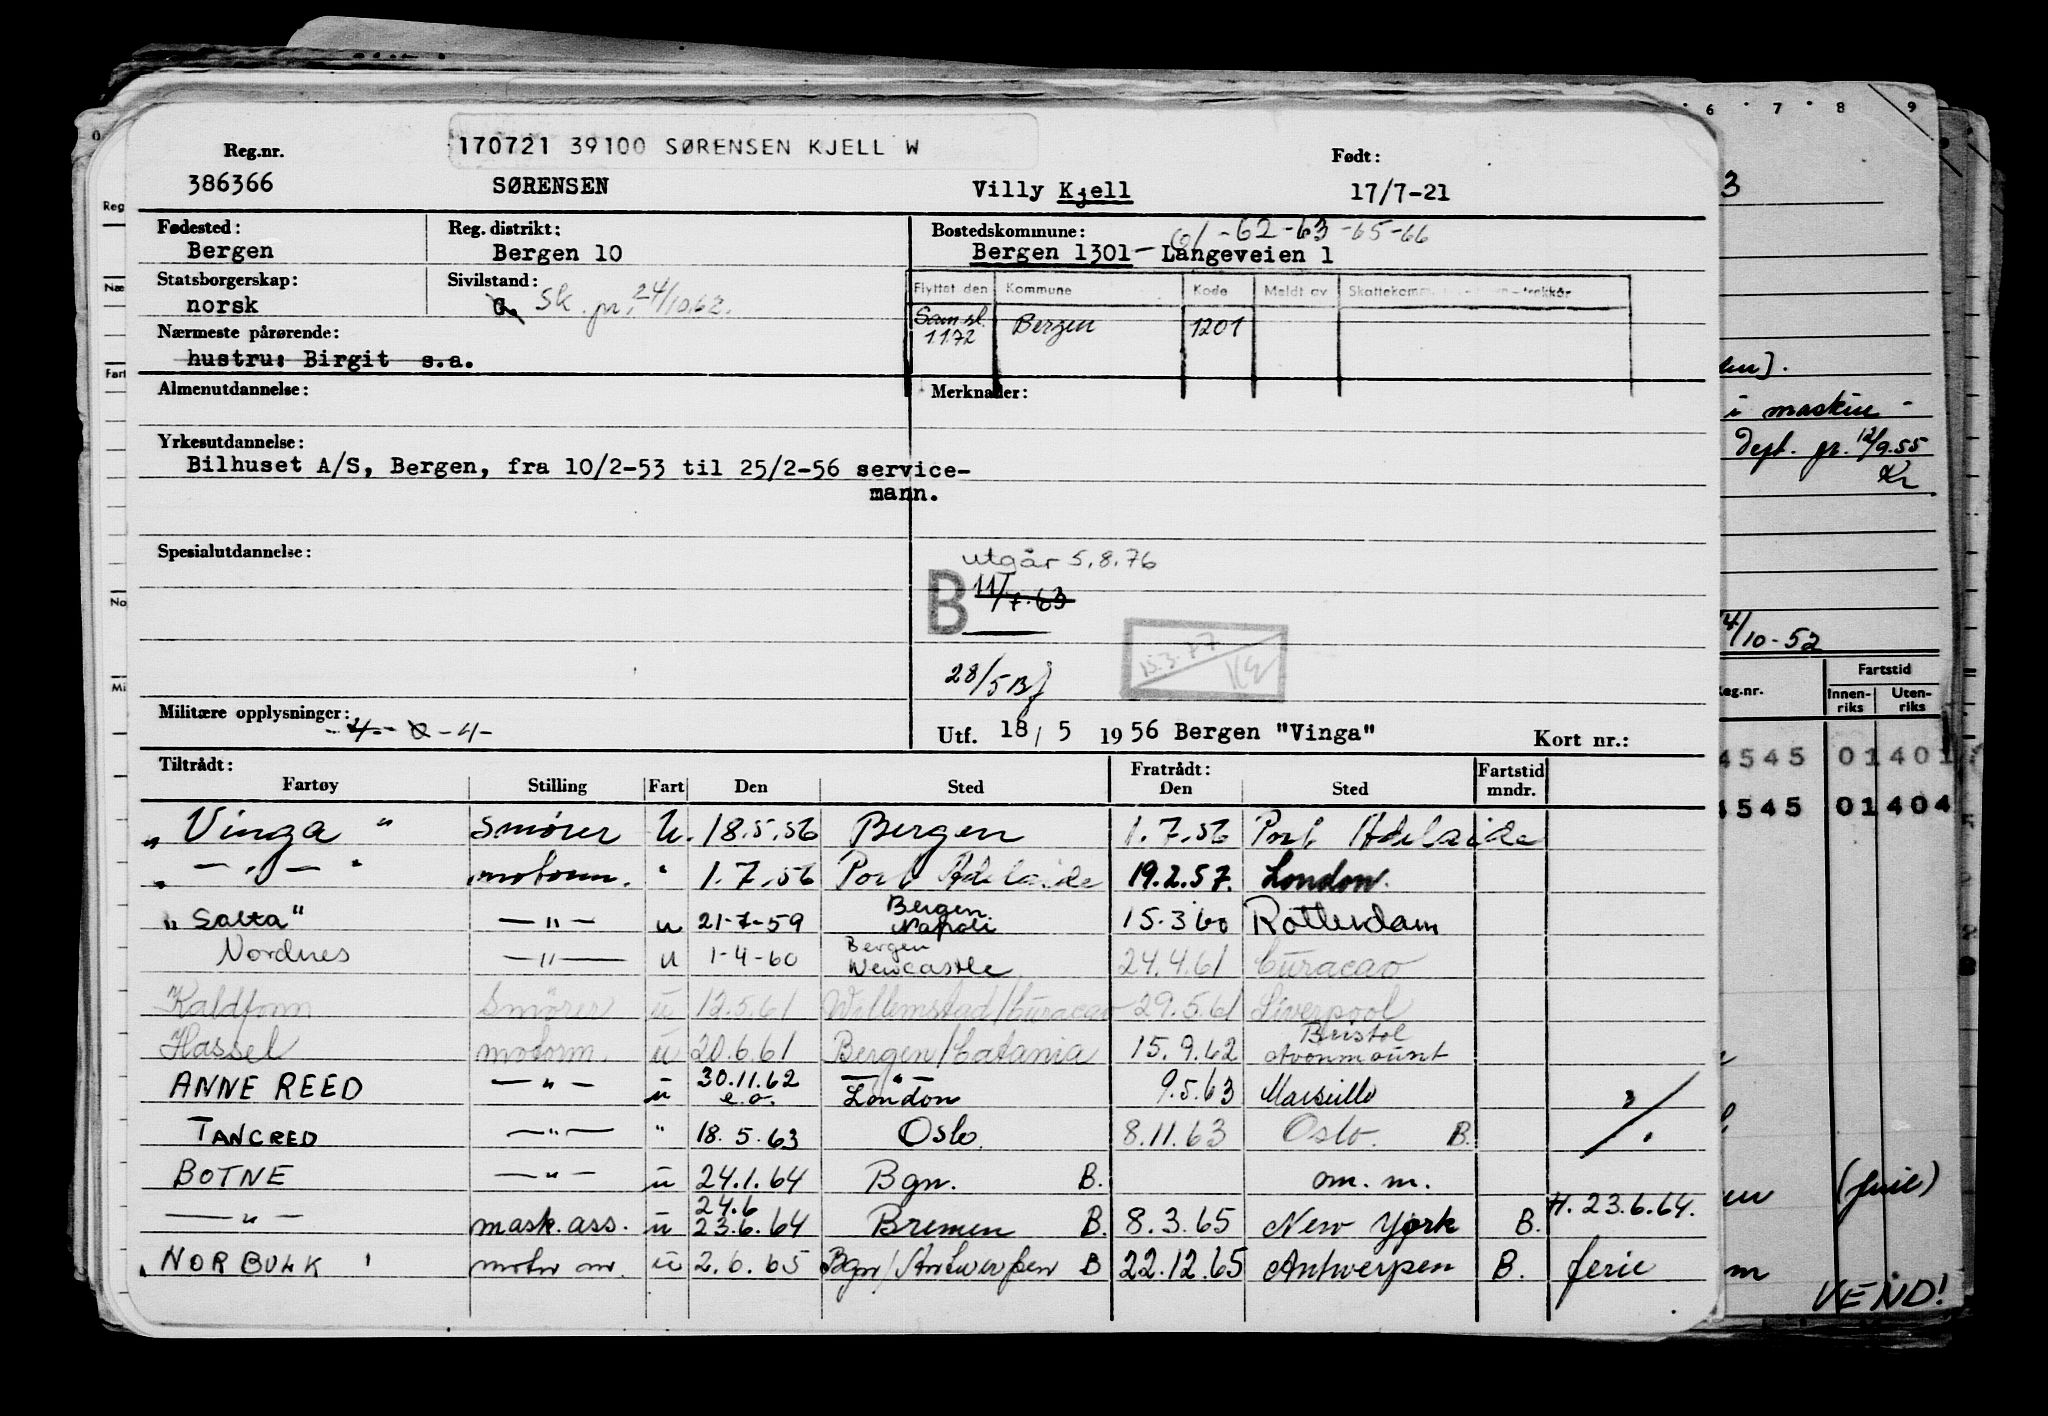 170721 39100 SØRENSEN KJELL W
Reg.nr. Født:
386366 SØRENSEN Villy Kjell 17/7-21
Fødested: Reg. distrikt: Bostedskommune: 61-62-63-65-66
Bergen Bergen 10 Bergen 1301 - Langeveien 1
Statsborgerskap: Sivilstand: Flyttet den Kommune Kode Meldt av Skattekomm
norsk G. Sk. pr. 24/10.62. Sam.sl. 1172 Bergen 1201
Nærmeste pårørende:
hustru: Birgit s.a.
Almenutdannelse: Merknader:
Yrkesutdannelse:
Bilhuset A/S, Bergen, fra 10/2-53 til 25/2-56 service-
mann.
Spesialutdannelse:
utgår 5.8.76
B 11/7-63
28/5 Bf 15.3.77
Militære opplysninger: -4-
Utf. 18/5 1956 Bergen "Vinga" Kort nr.:
Tiltrådt: Fratrådt: Fartstid
Fartøy Stilling Fart Den Sted Den Sted mndr.
"Vinga" Smører U. 18.5.56 Bergen 1.7.56 Port Adelaide
" — " — " motorm. " 1.7.56 Port Adelaide 19.2.57. London.
"Salta" — " — u 21-7-59 Bergen Napoli 15.3.60 Rotterdam
Nordnes — " — u 1-4-60 Bergen Newcastle 24.4.61 Curacao
Kaldfonn Smører u 12.5.61 Willemstad/Curacao 29.5.61 Liverpool
Hassel motorm. u 20.6.61 Bergen/Catania 15.9.62 Bristol Avonmount
ANNE REED — " — u 30.11.62 e.o. — " — London 9.5.63 Marseille
TANCRED — " — " 18.5.63 Oslo. 8.11.63 Oslo. B.
BOTNE — " — u 24.1.64 Bgn. B. om. m.
— " — mask.ass. u 24.6 23.6.64 Bremen B. 8.3.65 New York B. H. 23.6.64.
NORBULK motor m. u 2.6.65 Bgn/Antwerpen B 22.12.65 Antwerpen B. ferie
6 7 8 9
3
i maskin -
Dept. pr. 12/9.55
Kr
/10-52
Fartstid
Reg.nr. Innen-riks Uten-riks
4545 01 401
4545 01 404
(ferie)
VEND!